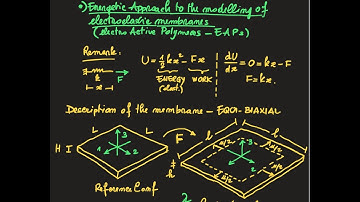 •) Energetic Approach to the modelling of
electroelastic membranes
(electro Active Polymers - EAPs)
Remark:
k
F
x
U = ½kx² - Fx
ENERGY WORK
(elast.)
dU/dx = 0 = kx - F
F = kx.
Description of the membrane - EQUI-BIAXIAL
L L
H
1 2 3
Reference Conf
F
l l
h
3
2